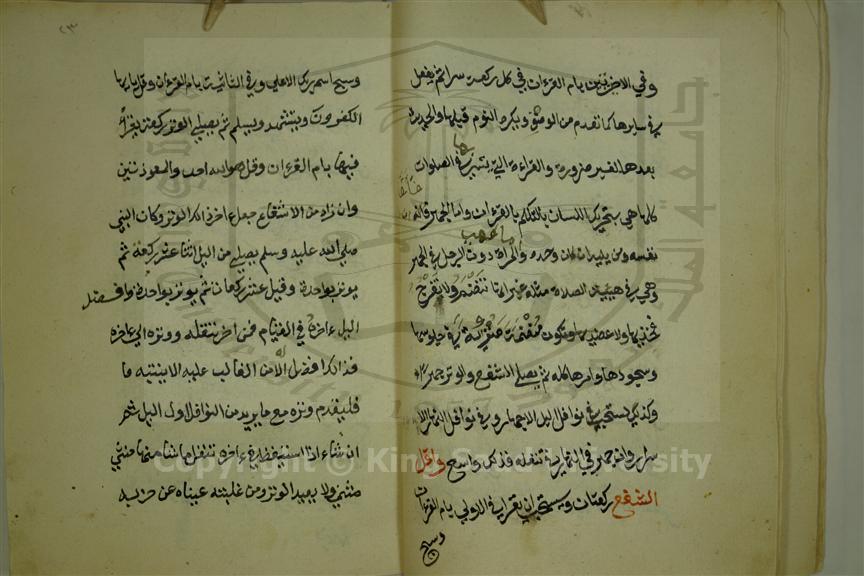 وفي الاخرتين بام القرءان في كل ركعة سرا ثم يفعل
في سايرها كما تقدم من الوصف ويكره النوم قبلها والحديث
بعدها لغير ضرورة والقراءة التي يسر بها في الصلوات
كلها هي بتحريك اللسان بالتكلم بالقرءان واما الجهر فانه
نفسه ومن يليه ان كان وحده والمراة دون الرجل في الجهر
وهي في هيئة الصلاة مثله غير انها تنضم ولا تفرج
فخذيها ولا عضديها وتكون منضمة منزوية في جلوسها
وسجودها وامرها كله ثم يصلي الشفع والوتر جهرا
وكذلك يستحب في نوافل اليل الاجهار وفي نوافل النهار الا
سرار وان جهر في النهار في تنفله فذلك واسع واقل
الشفع ركعتان ويستحب ان يقرا في الاولي بام القرءان
وسبح
٢٣
وسبح اسم ربك الاعلي وفي الثانية بام القرءان وقل يايها
الكفرون ويتشهد ويسلم ثم يصلي الوتر ركعة يقرأ
فيها بام القرءان وقل هو الله احد والمعوذتين
وان زاد من الاشفاع جعل اخر ذلك الوتر وكان النبي
صلي الله عليه وسلم يصلي من اليل اثنا عشر ركعة ثم
يوتر بواحدة وقيل عشر ركعات ثم يوتر بواحدة وافضل
اليل ءاخره في القيام فمن اخر تنفله ووتره الي ءاخره
فذلك افضل الا من الغالب عليه الا ينتبه
فليقدم وتره مع ما يريد من النوافل اول اليل ثم
ان شاء اذا استيقظ في ءاخره تنفل ما شاء منها مثني
مثني ولا يعيد الوتر ومن غلبته عيناه عن حزبه
Copyright © King Saud University
جامعة الملك سعود
1957